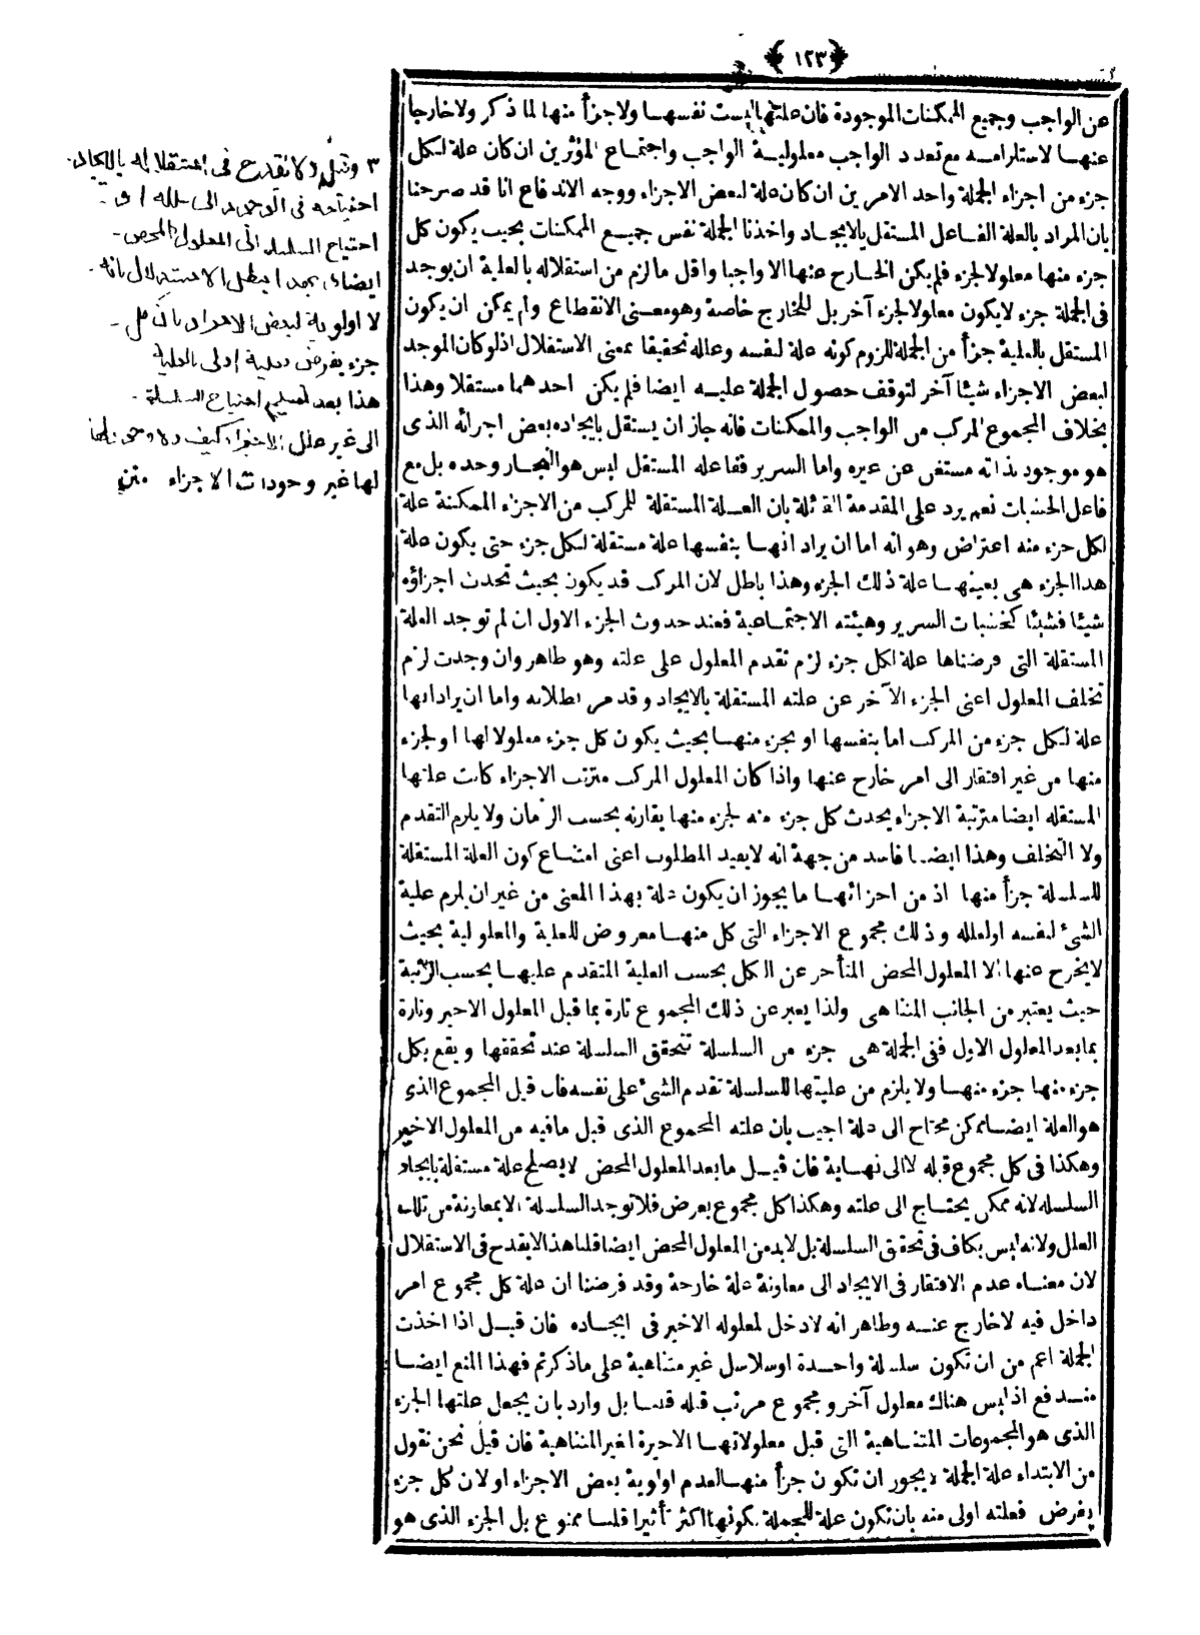 ﴿ ١٢٣ ﴾
عن الواجب وجميع الممكنات الموجودة فان علتها ليست نفسها ولا جزأ منها لما ذكر ولا خارجا
عنها لاستلزامه مع تعدد الواجب معلولية الواجب واجتماع المؤثرين ان كان علة لكل
جزء من اجزاء الجملة واحد الامرين ان كان علة لبعض الاجزاء ووجه الاندفاع انا قد صرحنا
بان المراد بالعلة الفاعل المستقل بالايجاد واخذنا الجملة نفس جميع الممكنات بحيث يكون كل
جزء منها معلولا لجزء فلم يكن الخارج عنها الا واجبا واقل ما لزم من استقلاله بالعلية ان يوجد
فى الجملة جزء لا يكون معلولا لجزء آخر بل للخارج خاصة وهو معنى الانقطاع ولم يمكن ان يكون
المستقل بالعلية جزأ من الجملة للزوم كونه علة لنفسه وعلله تحقيقا بمعنى الاستقلال اذ لو كان الموجد
لبعض الاجزاء شيئا آخر لتوقف حصول الجملة عليه ايضا فلم يكن احدهما مستقلا وهذا
بخلاف المجموع المركب من الواجب والممكنات فانه جاز ان يستقل بايجاده بعض اجزائه الذى
هو موجود بذاته مستغن عن غيره واما السرير ففاعله المستقل ليس هو النجار وحده بل مع
فاعل الخشبات نعم يرد على المقدمة القائلة بان العلة المستقلة للمركب من الاجزاء الممكنة علة
لكل جزء منه اعتراض وهو انه اما ان يراد انها بنفسها علة مستقلة لكل جزء حتى يكون علة
هذا الجزء هى بعينها علة ذلك الجزء وهذا باطل لان المركب قد يكون بحيث تحدث اجزاؤه
شيئا فشيئا كخشبات السرير وهيئته الاجتماعية فعند حدوث الجزء الاول ان لم توجد العلة
المستقلة التى فرضناها علة لكل جزء لزم تقدم المعلول على علته وهو ظاهر وان وجدت لزم
تخلف المعلول اعنى الجزء الآخر عن علته المستقلة بالايجاد وقد مر بطلانه واما ان يراد انها
علة لكل جزء من المركب اما بنفسها او بجزء منها بحيث يكون كل جزء معلولا لها او لجزء
منها من غير افتقار الى امر خارج عنها واذا كان المعلول المركب مترتب الاجزاء كانت علتها
المستقلة ايضا مترتبة الاجزاء يحدث كل جزء منه لجزء منها يقارنه بحسب الزمان ولا يلزم التقدم
ولا التخلف وهذا ايضا فاسد من جهة انه لا يفيد المطلوب اعنى امتناع كون العلة المستقلة
للسلسلة جزأ منها اذ من اجزائها ما يجوز ان يكون علة بهذا المعنى من غير ان يلزم علية
الشئ لنفسه او لعلله وذلك مجموع الاجزاء التى كل منها معروض للعلية والمعلولية بحيث
لا يخرج عنها الا المعلول المحض المتأخر عن الكل بحسب العلية المتقدم عليها بحسب الرتبة
حيث يعتبر من الجانب المتناهى ولذا يعبر عن ذلك المجموع تارة بما قبل المعلول الاخير وتارة
بما بعد المعلول الاول ففى الجملة هى جزء من السلسلة تتحقق السلسلة عند تحققها ويقع بكل
جزء منها جزء منها ولا يلزم من عليتها للسلسلة تقدم الشئ على نفسه فان قيل المجموع الذى
هو العلة ايضا ممكن محتاج الى علة اجيب بان علته المجموع الذى قبل ما فيه من المعلول الاخير
وهكذا فى كل مجموع قبله لا الى نهاية فان قيل ما بعد المعلول المحض لا يصلح علة مستقلة بايجاد
السلسلة لانه ممكن يحتاج الى علته وهكذا كل مجموع يفرض فلا توجد السلسلة الا بمعاونة من تلك
العلل ولانه ليس بكاف فى تحقق السلسلة بل لا بد من المعلول المحض ايضا قلنا هذا لا يقدح فى الاستقلال
لان معناه عدم الافتقار فى الايجاد الى معاونة علة خارجة وقد فرضنا ان علة كل مجموع امر
داخل فيه لا خارج عنه وظاهر انه لا دخل لمعلوله الاخير فى ايجاده فان قيل اذا اخذت
الجملة اعم من ان تكون سلسلة واحدة او سلاسل غير متناهية على ما ذكرتم فهذا المنع ايضا
مندفع اذ ليس هناك معلول آخر ومجموع مرتب قبله قلنا بل وارد بان يجعل علتها الجزء
الذى هو المجموعات المتناهية التى قبل معلولاتها الاخيرة الغير المتناهية فان قيل نحن نقول
من الابتداء علة الجملة لا يجوز ان تكون جزأ منها لعدم اولوية بعض الاجزاء او لان كل جزء
يفرض فعلته اولى منه بان تكون علة للجملة لكونها اكثر تأثيرا قلنا ممنوع بل الجزء الذى هو
٣ وقيل ولا تقدح فى استقلاله بالايجاد
احتياجه فى الوجود الى علله او
احتياج السلسلة الى المعلول المحض
ايضا نعم يبطل الاستدلال بانه
لا اولوية لبعض الاجزاء بان كل
جزء يفرض فعلية اولى بالعلية
هذا بعد تسليم احتياج السلسلة
الى غير علل الاجزاء كيف ولا وجود
لها غير وجودات الاجزاء متن